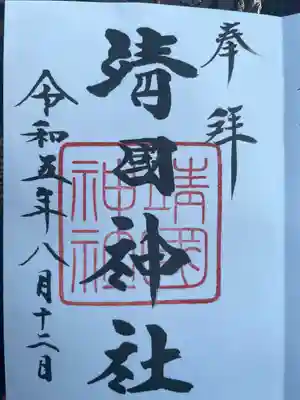 奉拝
靖國神社
令和五年八月十二日
靖國
神社